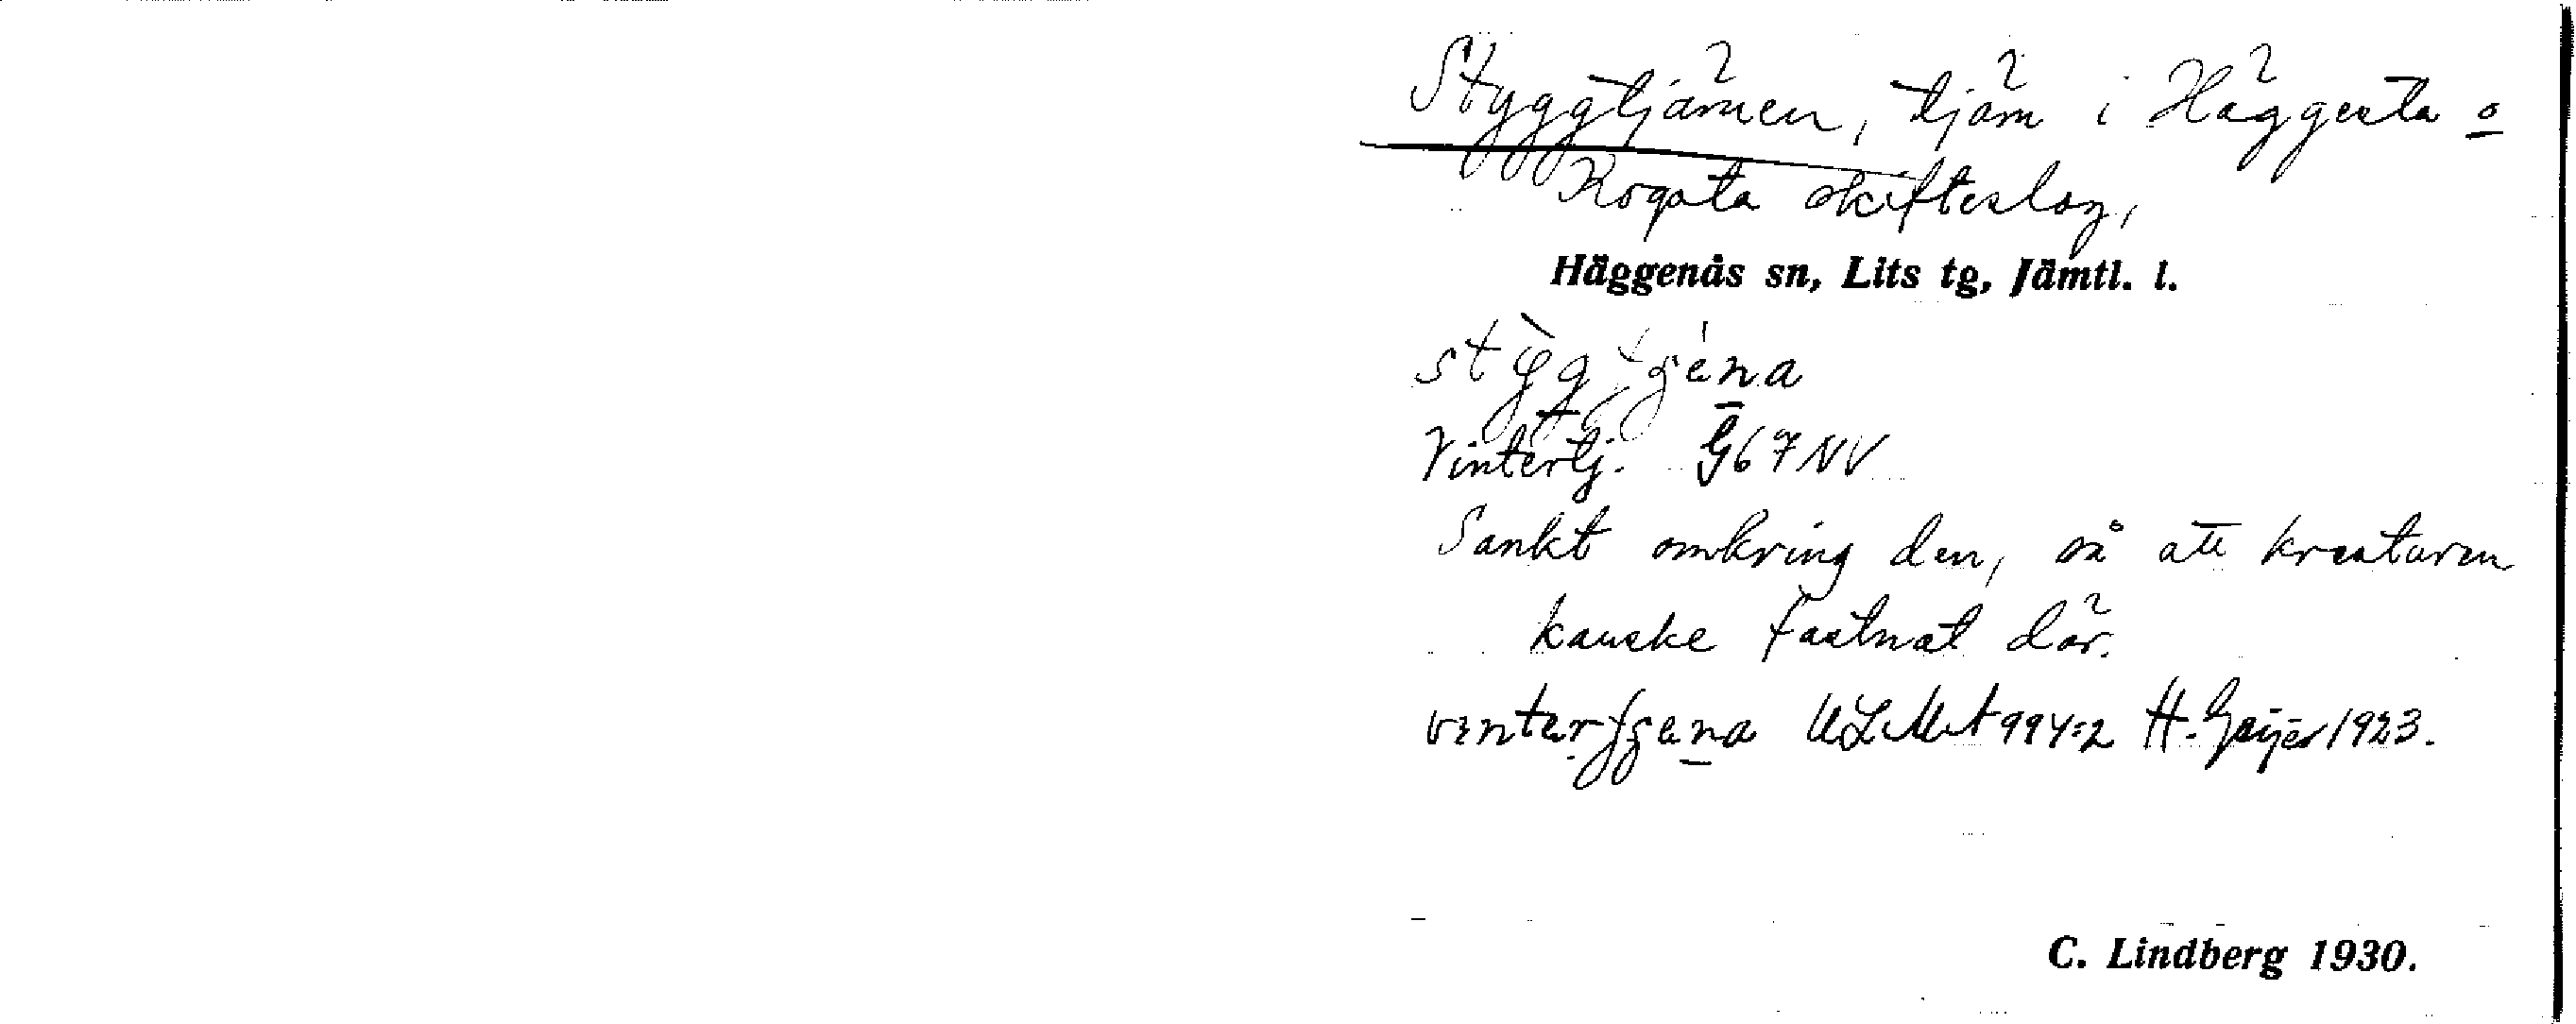 Styggtjärnen, tjärn i Häggesta o
Kogsta skifteslag,
Häggenås sn, Lits tg, Jämtl. l.
Vintertj. G67NV
Sankt omkring den, så att kreaturen
kanske fastnat där.
ULMA 994:2 H. Geijer 1923.
C. Lindberg 1930.